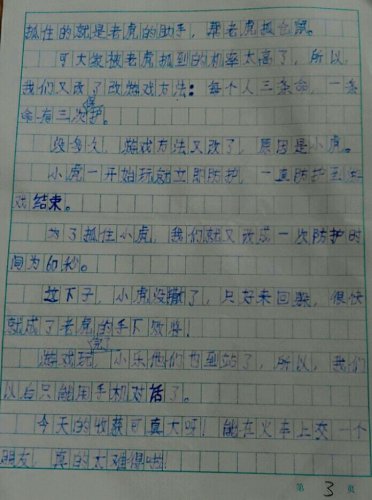 抓住的就是老虎的助手，帮老虎抓仓鼠。
可大家被老虎抓到的机率太高了，所以，
我们又改了改游戏方法：每个人三条命，一条
命有三次保护。
没多久，游戏方法又改了，原因是小虎。
小虎一开始玩就立即防护，一直防护至游
戏结束。
为了抓住小虎，我们就又改成一次防护时
间为60秒。
这下子，小虎没辙了，只好来回躲，很快
就成了老虎的手下败将！
游戏玩完了，小乐他们也到站了，所以，我们
以后只能用手机对话了。
今天的收获可真大呀！能在火车上交一个
朋友，真的太难得啦！
第 3 页